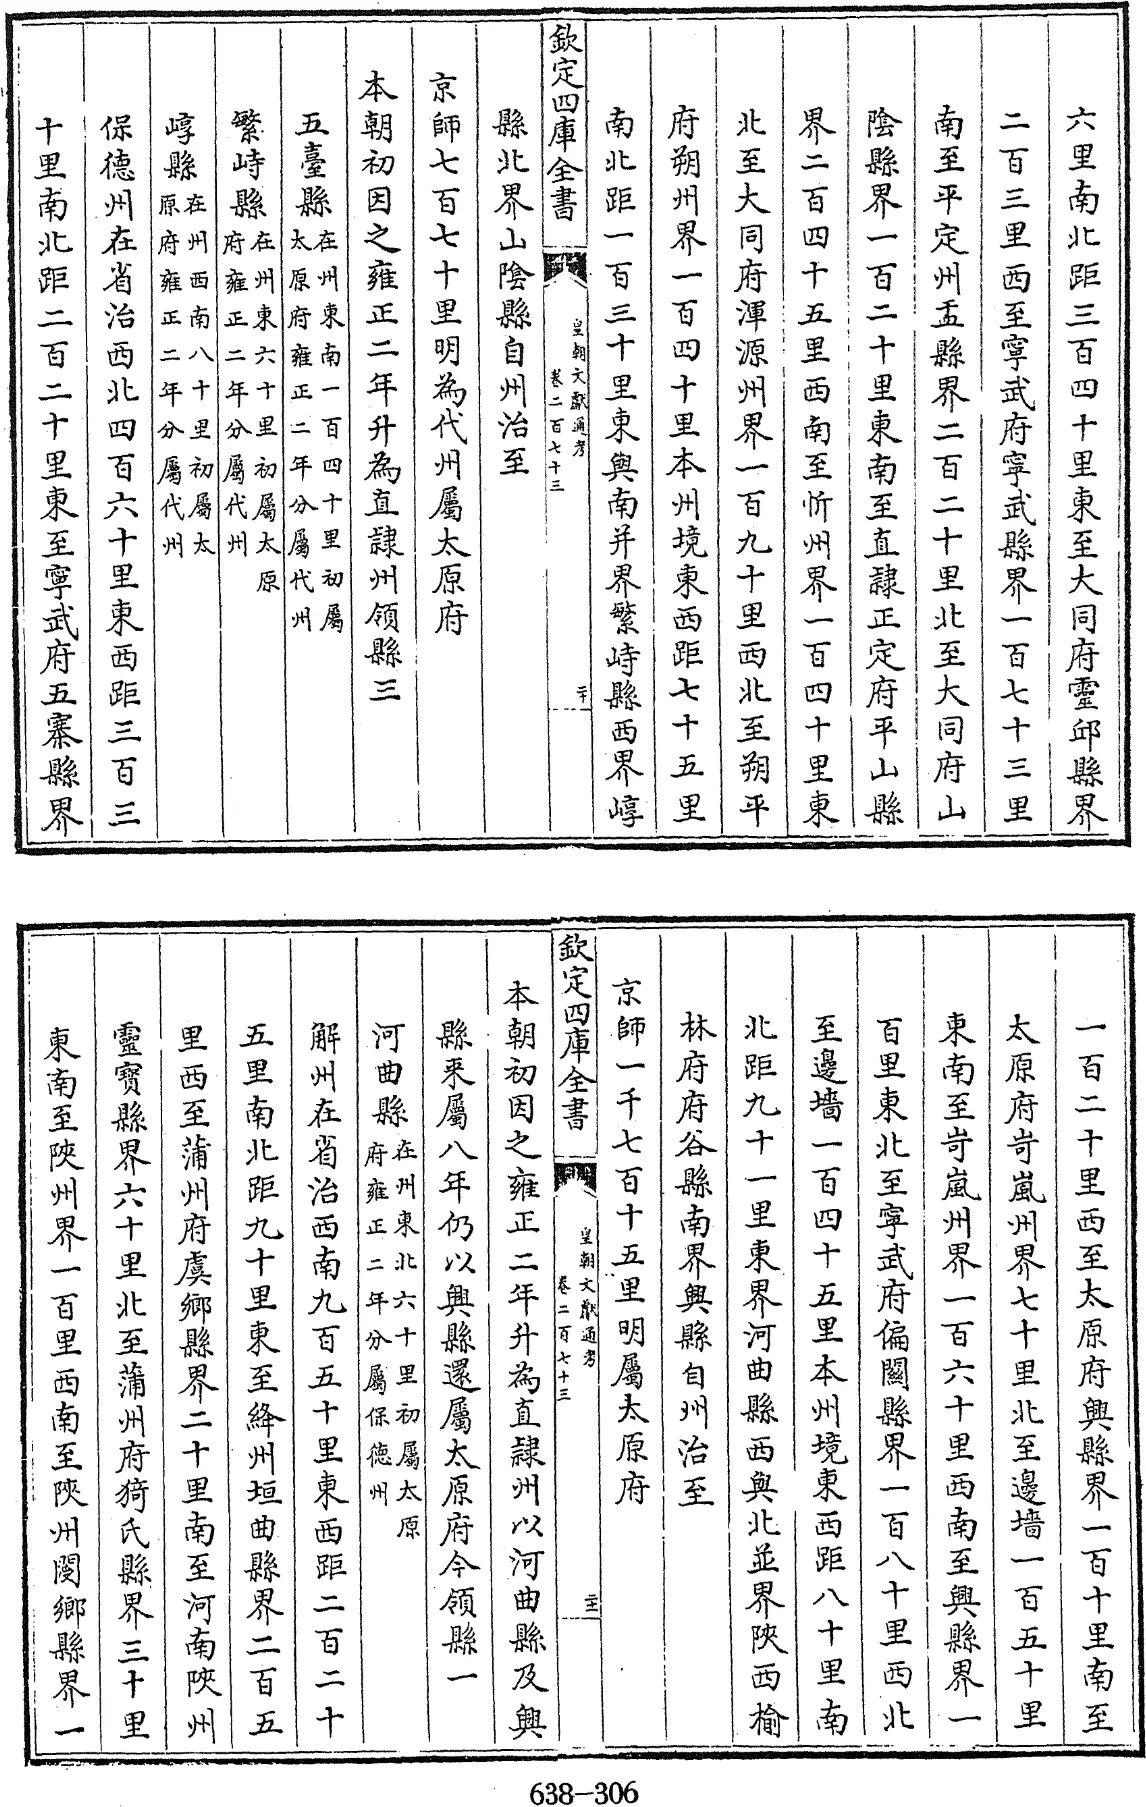 六里南北距三百四十里東至大同府靈邱縣界
二百三里西至寧武府寧武縣界一百七十三里
南至平定州盂縣界二百二十里北至大同府山
陰縣界一百二十里東南至直隸正定府平山縣
界二百四十五里西南至忻州界一百四十里東
北至大同府渾源州界一百九十里西北至朔平
府朔州界一百四十里本州境東西距七十五里
南北距一百三十里東與南并界繁峙縣西界崞
欽定四庫全書
皇朝文獻通考
卷二百七十三
二十
縣北界山陰縣自州治至
京師七百七十里明為代州屬太原府
本朝初因之雍正二年升為直隸州領縣三
五臺縣在州東南一百四十里初屬
太原府雍正二年分屬代州
繁峙縣在州東六十里初屬太原
府雍正二年分屬代州
崞縣在州西南八十里初屬太
原府雍正二年分屬代州
保德州在省治西北四百六十里東西距三百三
十里南北距二百二十里東至寧武府五寨縣界
一百二十里西至太原府興縣界一百十里南至
太原府岢嵐州界七十里北至邊墻一百五十里
東南至岢嵐州界一百六十里西南至興縣界一
百里東北至寧武府偏關縣界一百八十里西北
至邊墻一百四十五里本州境東西距八十里南
北距九十一里東界河曲縣西與北並界陝西榆
林府府谷縣南界興縣自州治至
京師一千七百十五里明屬太原府
欽定四庫全書
皇朝文獻通考
卷二百七十三
二十一
本朝初因之雍正二年升為直隸州以河曲縣及興
縣來屬八年仍以興縣還屬太原府今領縣一
河曲縣在州東北六十里初屬太原
府雍正二年分屬保德州
解州在省治西南九百五十里東西距二百二十
五里南北距九十里東至絳州垣曲縣界二百五
里西至蒲州府虞鄉縣界二十里南至河南陝州
靈寶縣界六十里北至蒲州府猗氏縣界三十里
東南至陝州界一百里西南至陝州閿鄉縣界一
638-306